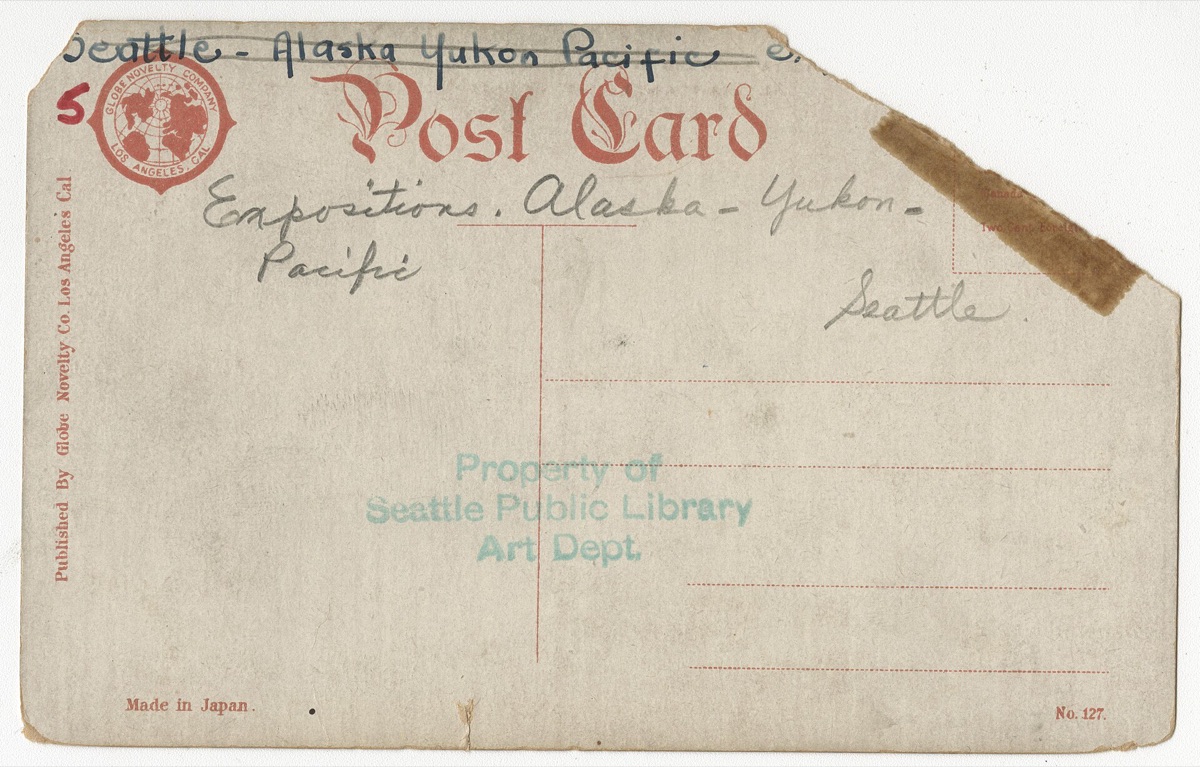 Seattle - Alaska Yukon Pacific e.
5
GLOBE NOVELTY COMPANY
LOS ANGELES, CAL
Post Card
Expositions. Alaska - Yukon -
Pacific
Seattle.
Canada
Two Cent
Published By Globe Novelty Co. Los Angeles Cal
Property of
Seattle Public Library
Art Dept.
Made in Japan.
No. 127.